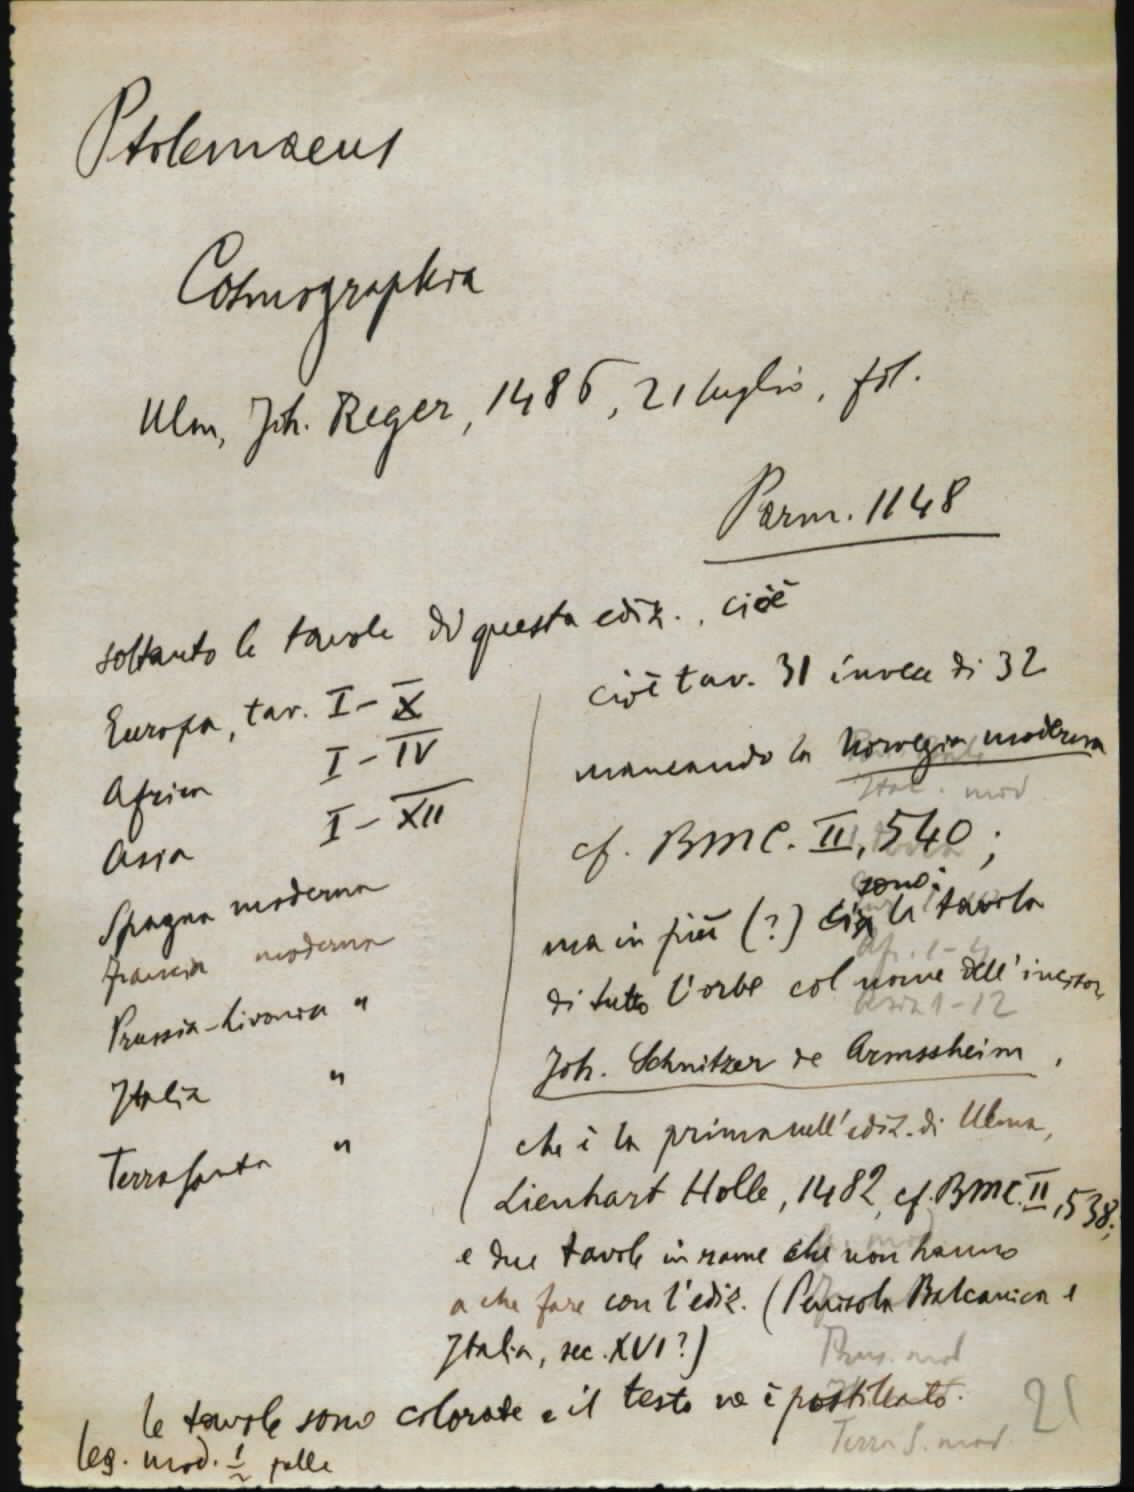 Ptolemaeus
Cosmographia
Ulm, Joh. Reger, 1486, 21 luglio, fol.
Parm. 1148
soltanto le tavole di questa ediz., cioè
Europa, tav. I – X
Africa I – IV
Asia I – XII
Spagna moderna
Francia moderna
Prussia-Livonia "
Italia "
Terra Santa "
cioè tav. 31 invece di 32
mancando la Norvegia moderna
cf. BMC. II, 540;
sono:
ma in più (?) la tavola
di tutto l'orbe col nome dell'incisore
Joh. Schnitzer de Armssheim,
che è la prima nell'ediz. di Ulma,
Lienhart Holle, 1482, cf. BMC. II, 538;
e due tavole in rame che non hanno
a che fare con l'ediz. (Penisola Balcanica e
Italia, sec. XVI?)
le tavole sono colorate e il testo ne è postillato.
leg. mod. 1/2 pelle
Ital. mod
Af. 1-4
Asia 1-12
Prus. mod
Terra S. mod.
21